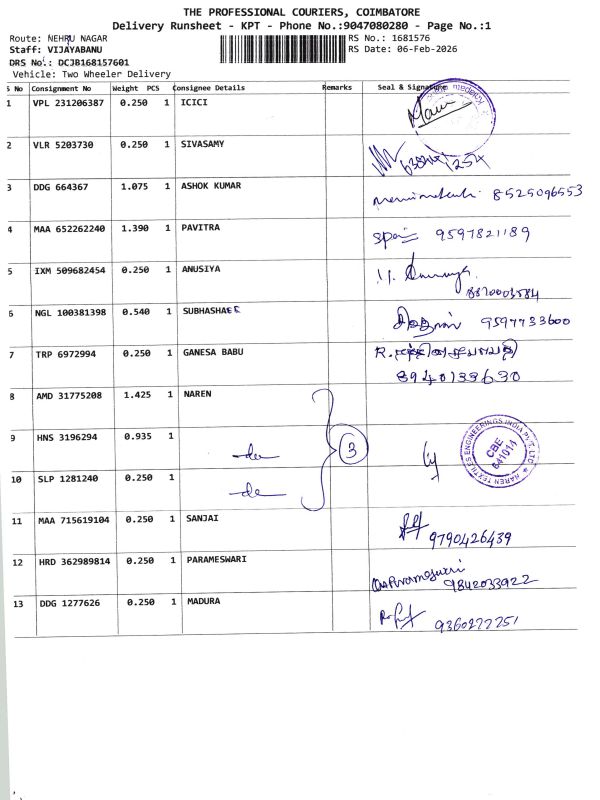 THE PROFESSIONAL COURIERS, COIMBATORE
Delivery Runsheet - KPT - Phone No.:9047080280 - Page No.:1
Route: NEHRU NAGAR
RS No.: 1681576
Staff: VIJAYABANU
RS Date: 06-Feb-2026
DRS No.: DCJB168157601
Vehicle: Two Wheeler Delivery
S No Consignment No Weight PCS Consignee Details Remarks Seal & Signature
1 VPL 231206387 0.250 1 ICICI
2 VLR 5203730 0.250 1 SIVASAMY
3 DDG 664367 1.075 1 ASHOK KUMAR 8525096553
4 MAA 652262240 1.390 1 PAVITRA 9597821189
5 IXM 509682454 0.250 1 ANUSIYA
6 NGL 100381398 0.540 1 SUBHASHREE 9597733600
7 TRP 6972994 0.250 1 GANESA BABU
8940133630
8 AMD 31775208 1.425 1 NAREN
9 HNS 3196294 0.935 1 3
NAREN TEXTILES ENGINEERINGS INDIA PVT. LTD
CBE
641014
10 SLP 1281240 0.250 1
11 MAA 715619104 0.250 1 SANJAI
9790426439
12 HRD 362989814 0.250 1 PARAMESWARI
9842033922
13 DDG 1277626 0.250 1 MADURA
9360277251